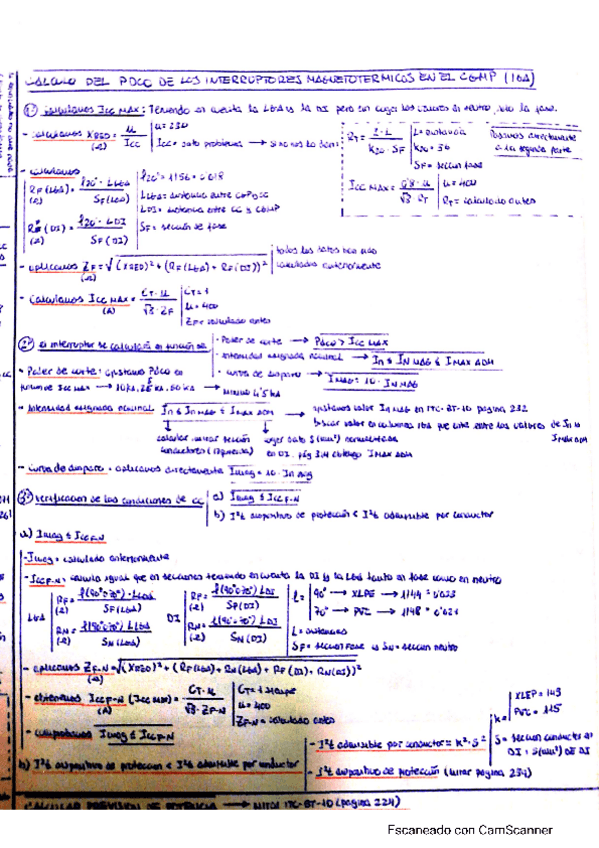 CALCULO DEL PDCC DE LOS INTERRUPTORES MAGNETOTERMICOS EN EL CGMP (IGA)
1º Calculamos Icc MAX: Teniendo en cuenta la LGA y la DI pero sin coger los valores de neutro, solo la fase.
- calculamos XRED = U / Icc
(Ω)
U = 230
Icc = dato problema → si no nos lo dan:
RT = 2·L / K20·SF
L = distancia
K20 = 56
SF = sección fase
Pasamos directamente a la segunda parte
Icc MAX = 0'8·U / √3·RT
U = 400
RT = calculado antes
- calculamos
RF (LGA) = ρ20º·LLGA / SF(LGA)
(Ω)
RF (DI) = ρ20º·LDI / SF(DI)
(Ω)
ρ20º = 1/56 = 0'018
LDI = distancia entre CC y CGMP
SF = sección de fase
- aplicamos ZF = √(XRED)² + (RF(LGA) + RF(DI))²
(Ω)
todos los datos han sido calculados anteriormente
- Calculamos Icc MAX = CT·U / √3·ZF
(A)
CT = 1
U = 400
ZF = calculado antes
2º El interruptor se calculará en función de
· Poder de corte → PDCC > Icc MAX
· Intensidad asignada nominal → In ≤ IN MAG ≤ IMAX ADM
· curva de disparo → IMAG = 10·IN MAG
- Poder de corte: ajustamos PDCC en función de Icc MAX → 10 KA, 25 KA, 50 KA → mínimo 4'5 KA
- Intensidad asignada nominal In ≤ IN MAG ≤ IMAX ADM → ajustamos valor IN MAG en ITC-BT-10 pagina 232
buscar valor en columna IGA que esté entre los valores de In e IMAX ADM
calcular mirar sección conductores (izquierda)
coger dato S (mm²) normalizada en DI. pág 314 obtengo IMAX ADM
- curva de disparo: aplicamos directamente IMAG = 10·In
3º Verificación de las condiciones de CC
a) IMAG ≤ Icc F-N
b) I²t dispositivo de protección < I²t admisible por conductor
a) IMAG ≤ Icc F-N
- IMAG = calculado anteriormente
- Icc F-N = calculo igual que en secciones teniendo en cuenta la DI y la LGA tanto en fase como en neutro
LGA
RF = ρ(90º o 70º)·LLGA / SF(LGA)
(Ω)
RN = ρ(90º o 70º) LLGA / SN(LGA)
(Ω)
DI
RF = ρ(90º o 70º) LDI / SF(DI)
(Ω)
RN = ρ(90º o 70º) LDI / SN(DI)
(Ω)
ρ =
90º → XLPE → 1/44 = 0'023
70º → PVC → 1/48 = 0'021
L = distancias
SF = sección fase y SN = sección neutro
- aplicamos ZF-N = √(XRED)² + (RF(LGA) + RN(LGA) + RF(DI) + RN(DI))²
- obtenemos Icc F-N (Icc MIN) = CT·U / √3·ZF-N
(A)
CT = 1 siempre
U = 400
ZF-N = calculado antes
- comprobamos IMAG ≤ Icc F-N
b) I²t dispositivo de protección < I²t admisible por conductor
- I²t admisible por conductor = K²·S²
K =
XLEP = 143
PVC = 115
S = sección conductor en DI = S(mm²) DE DI
- I²t dispositivo de protección (mirar pagina 234)
CALCULAR PREVISION DE POTENCIA → MITOI ITC-BT-10 (pagina 224)
Escaneado con CamScanner